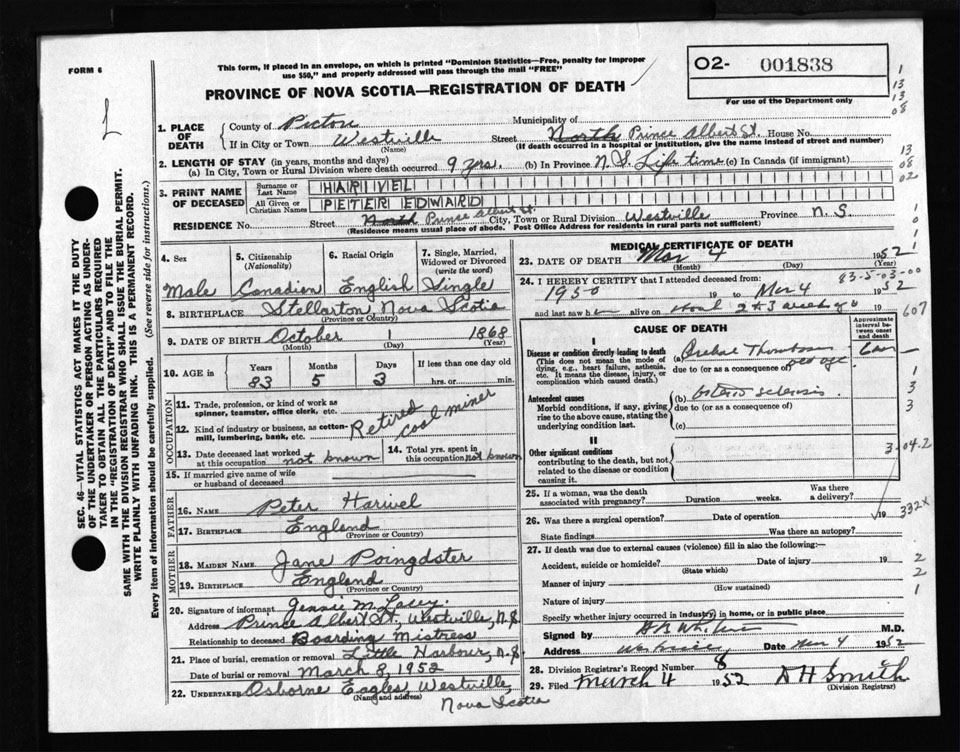 FORM 6
This form, if placed in an envelope, on which is printed "Dominion Statistics—Free, penalty for improper
use $50," and properly addressed will pass through the mail "FREE"
PROVINCE OF NOVA SCOTIA—REGISTRATION OF DEATH
O2- 001838
For use of the Department only
1
13
13
08
13
08
02
1. PLACE OF DEATH
County of Pictou Municipality of
If in City or Town Westville Street North Prince Albert St. House No.
(Name) (If death occurred in a hospital or institution, give the name instead of street and number)
2. LENGTH OF STAY (in years, months and days)
(a) In City, Town or Rural Division where death occurred 9 yrs. (b) In Province N.S. Life time (c) In Canada (if immigrant)
3. PRINT NAME OF DECEASED
Surname or Last Name HARIVEL
All Given or Christian Names PETER EDWARD
RESIDENCE No. Street North Prince Albert St. City, Town or Rural Division Westville Province N.S.
(Residence means usual place of abode. Post Office Address for residents in rural parts not sufficient)
4. Sex Male
5. Citizenship (Nationality) Canadian
6. Racial Origin English
7. Single, Married, Widowed or Divorced (write the word) Single
8. BIRTHPLACE Stellarton Nova Scotia
(Province or Country)
9. DATE OF BIRTH October 1 1868
(Month) (Day) (Year)
10. AGE in Years Months Days If less than one day old
83 5 3 hrs. or min.
OCCUPATION
11. Trade, profession, or kind of work as spinner, teamster, office clerk, etc.
12. Kind of industry or business, as cotton-mill, lumbering, bank, etc.
Retired coal miner
13. Date deceased last worked at this occupation not known
14. Total yrs. spent in this occupation not known
15. If married give name of wife or husband of deceased
FATHER
16. NAME Peter Harivel
17. BIRTHPLACE England
(Province or Country)
MOTHER
18. MAIDEN NAME Jane Poingdster
19. BIRTHPLACE England
(Province or Country)
20. Signature of informant Jennie M. Lacey
Address Prince Albert St., Westville, N.S.
Relationship to deceased Boarding Mistress
21. Place of burial, cremation or removal Little Harbour, N.S.
Date of burial or removal March 8, 1952
22. UNDERTAKER Osborne Eagles, Westville,
(Name and address)
Nova Scotia
MEDICAL CERTIFICATE OF DEATH
23. DATE OF DEATH Mar 4 1952
(Month) (Day) (Year)
83-5-03-00
24. I HEREBY CERTIFY that I attended deceased from:
1950 19 to Mar 4 1952
and last saw h alive on 19
607
CAUSE OF DEATH
Approximate interval between onset and death
I
Disease or condition directly leading to death
(This does not mean the mode of dying, e.g., heart failure, asthenia, etc. It means the disease, injury, or complication which caused death.)
(a)
due to (or as a consequence of) old age
Antecedent causes
Morbid conditions, if any, giving rise to the above cause, stating the underlying condition last.
(b)
due to (or as a consequence of)
(c)
II
Other significant conditions
contributing to the death, but not related to the disease or condition causing it.
3-04-2
25. If a woman, was the death associated with pregnancy? Duration weeks. Was there a delivery?
26. Was there a surgical operation? Date of operation 19
332X
State findings Was there an autopsy?
27. If death was due to external causes (violence) fill in also the following:—
Accident, suicide or homicide? Date of injury 19
(State which)
Manner of injury
(How sustained)
Nature of injury
Specify whether injury occurred in industry, in home, or in public place
Signed by M.D.
Address Westville Date Mar 4 1952
28. Division Registrar's Record Number 8
29. Filed March 4 1952 D H Smith
(Division Registrar)
SEC. 46—VITAL STATISTICS ACT MAKES IT THE DUTY
OF THE UNDERTAKER OR PERSON ACTING AS UNDER-
TAKER TO OBTAIN ALL THE PARTICULARS REQUIRED
IN THE "REGISTRATION OF DEATH" AND TO FILE THE
SAME WITH THE DIVISION REGISTRAR WHO SHALL ISSUE THE BURIAL PERMIT.
WRITE PLAINLY WITH UNFADING INK. THIS IS A PERMANENT RECORD.
Every item of information should be carefully supplied. (See reverse side for instructions.)